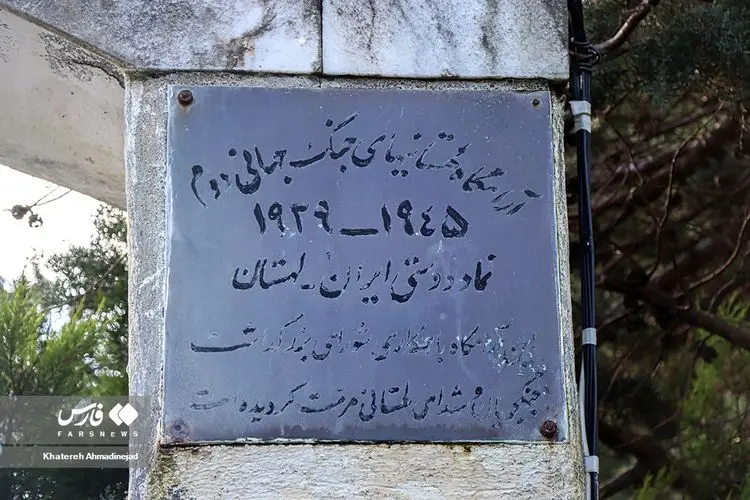 آرامگاه لهستانیهای جنگ جهانی دوم
۱۹۳۹ــ۱۹۴۵
نماد دوستی ایران ـ لهستان
این آرامگاه با همکاری شورای بزرگداشت
جنگ و شهدای لهستانی مرمت گردیده است
فارس
FARSNEWS
Khatereh Ahmadinejad